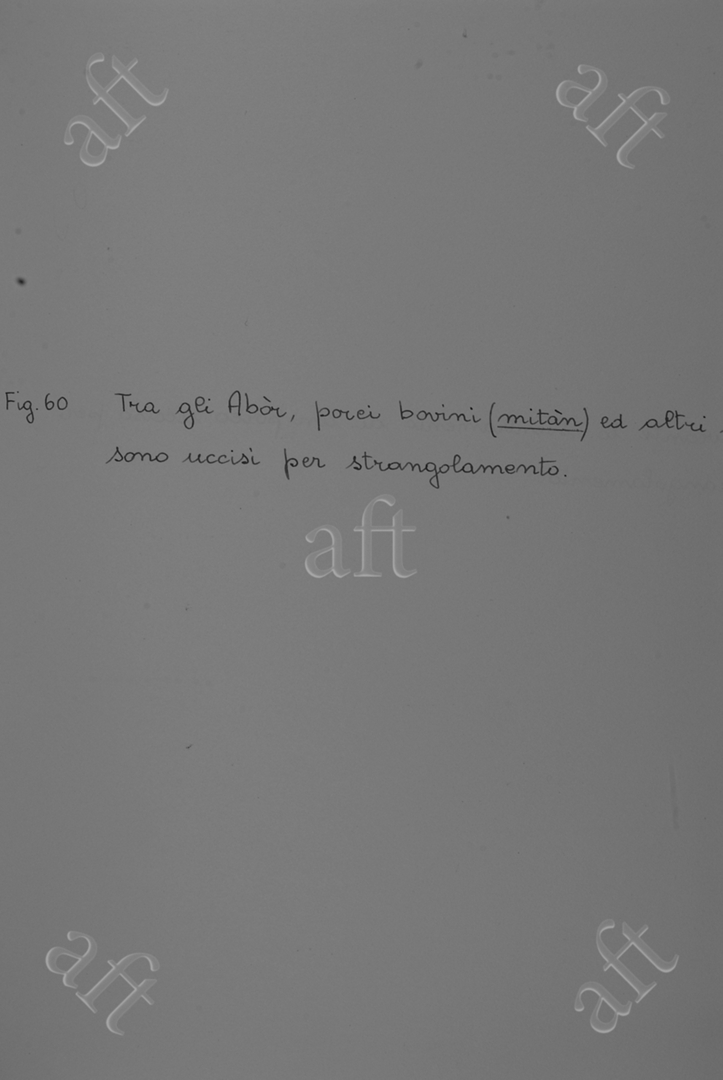 aft aft
Fig. 60 Tra gli Abòr, porci bovini (mitàn) ed altri
sono uccisi per strangolamento.
aft
aft aft